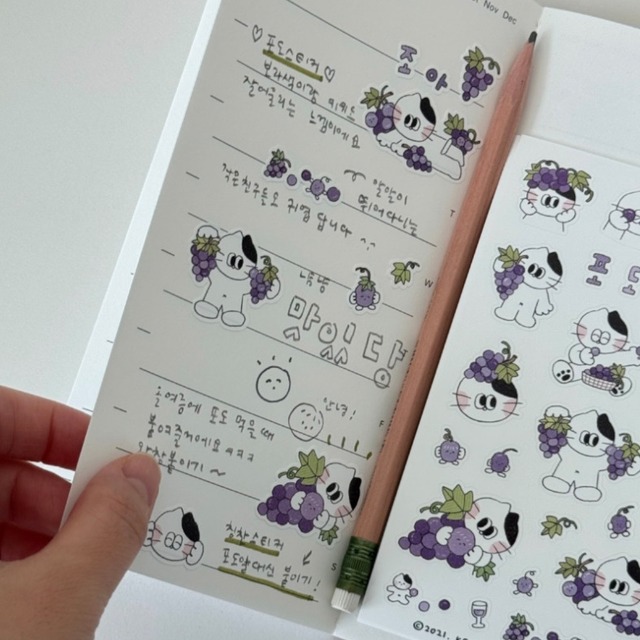 Nov Dec
♡ 포도스티커 ♡
조아
보라색이랑
잘어울리는 느낌이에요
알알이
작은친구들도 귀엽답니다 ^^
뛰어다니는
T
W
냠냠
맛있당
안녕!
F
손여름에 포도 먹을때
붙여줄거에요 ㅋㅋㅋ
왕창붙이기 ~
S
칭찬스티커
포도알대신 붙이기!
조도
©2021.